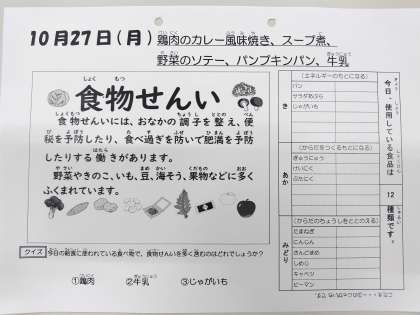 10月27日(月) 鶏肉のカレー風味焼き、スープ煮、
野菜のソテー、パンプキンパン、牛乳
食物せんい
食物せんいには、おなかの調子を整え、便
秘を予防したり、食べ過ぎを防いで肥満を予防
したりする働きがあります。
野菜やきのこ、いも、豆、海そう、果物などに多く
ふくまれています。
クイズ 今日の給食に使われている食べ物で、食物せんいを多く含むのはどれでしょうか?
①鶏肉 ②牛乳 ③じゃがいも
き
(エネルギーのもとになる)
パン
サラダあぶら
じゃがいも
あか
(からだをつくるもとになる)
ぎゅうにゅう
とりにく
ぶたにく
みどり
(からだのちょうしをととのえる)
たまねぎ
にんじん
さんどまめ
しめじ
キャベツ
ピーマン
今日、使用している食品は
12
種類です。